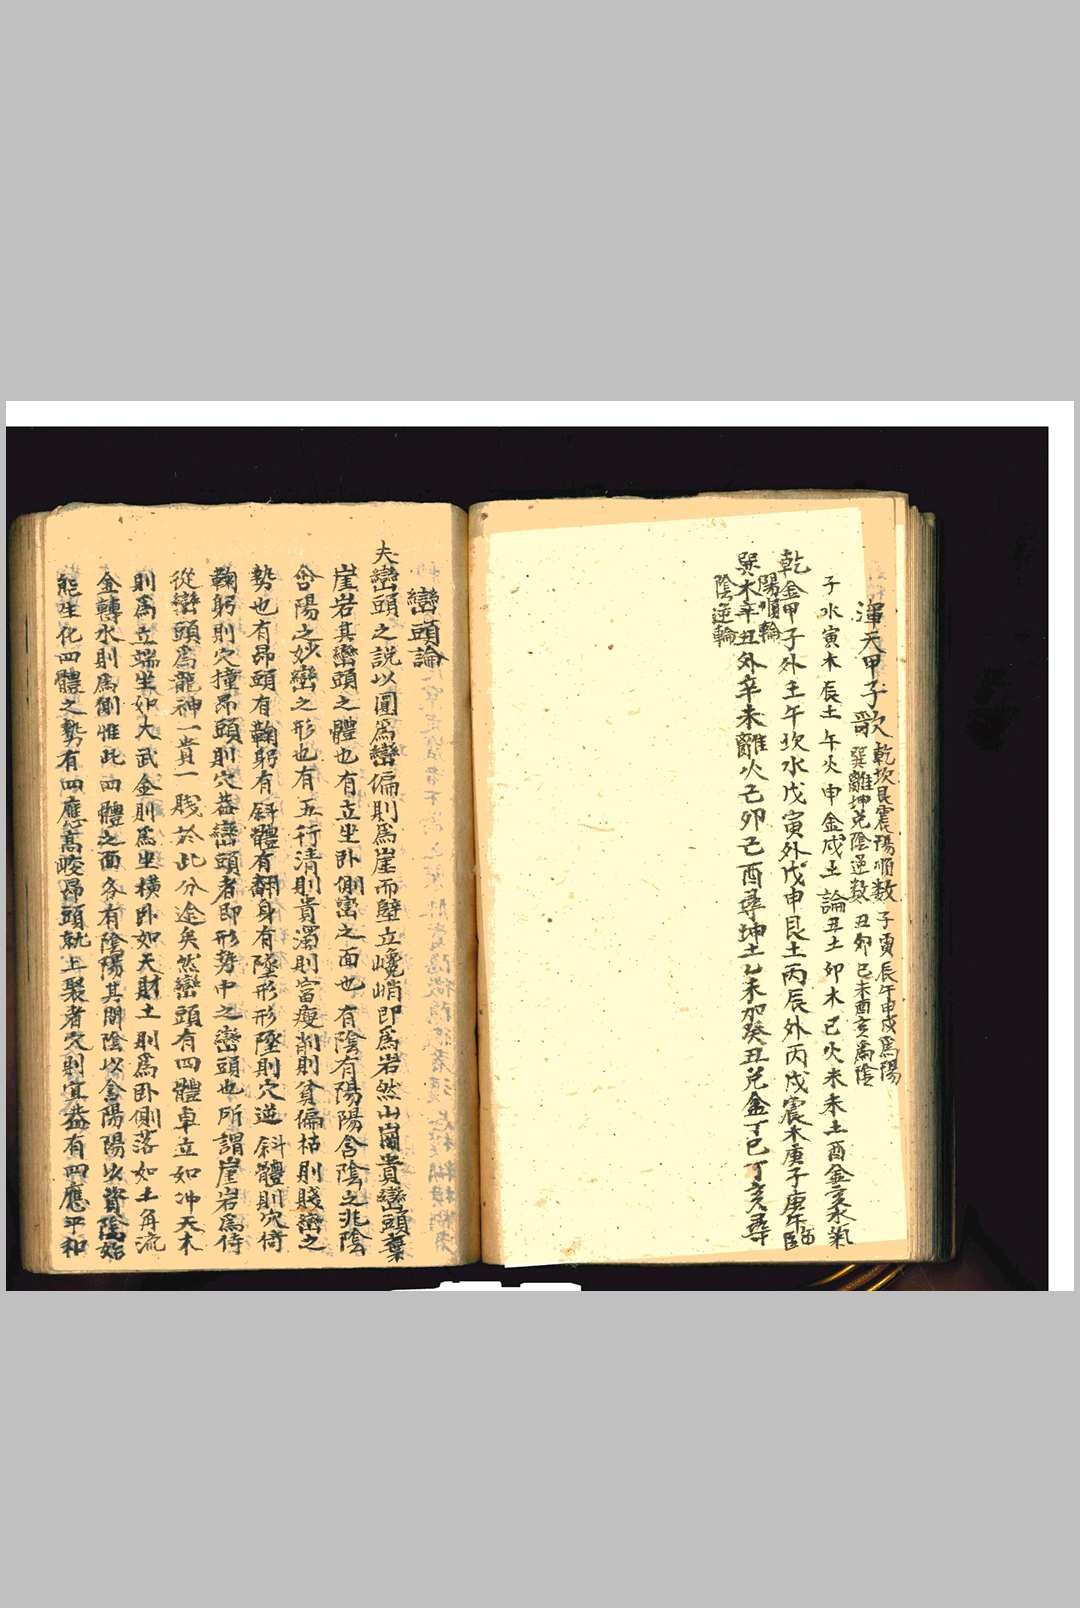 渾天甲子歌
乾坎艮震陽順數 子寅辰午申戌爲陽
巽離坤兌陰逆數 丑卯巳未酉亥爲陰
子水寅木辰土午火申金戌土 論丑土卯木巳火未土酉金亥水氣
乾金甲子外壬午坎水戊寅外戊申艮土丙辰外丙戌震木庚子庚午臨
陽順輪
巽木辛丑外辛未離火己卯己酉尋坤土乙未加癸丑兌金丁巳丁亥尋
陰逆輪
巒頭論
夫巒頭之說以圓爲巒偏則爲崖而壁立巉峭即爲岩然山崗貴巒頭棄
崖岩其巒頭之體也有立坐卧側巒之面也有陰有陽陽含陰之兆陰
含陽之妙巒之形也有五行清則貴濁則富瘦削則貧偏枯則賤巒之
勢也有昂頭有鞠躬有斜體有翻身有墜形形墜則穴逆斜體則穴倚
鞠躬則穴撞昂頭則穴蓋巒頭者即形勢中之巒頭也所謂崖岩爲侍
從巒頭爲龍神一貴一賤於此分途矣然巒頭有四體卓立如冲天木
則爲立端坐如大武金則爲坐橫卧如天財土則爲卧側落如土角流
金轉水則爲側惟此四體之面各有陰陽其間陰以含陽陽以資陰始
能生化四體之勢有四應高峻昂頭就上聚者穴則宜蓋有四應平和